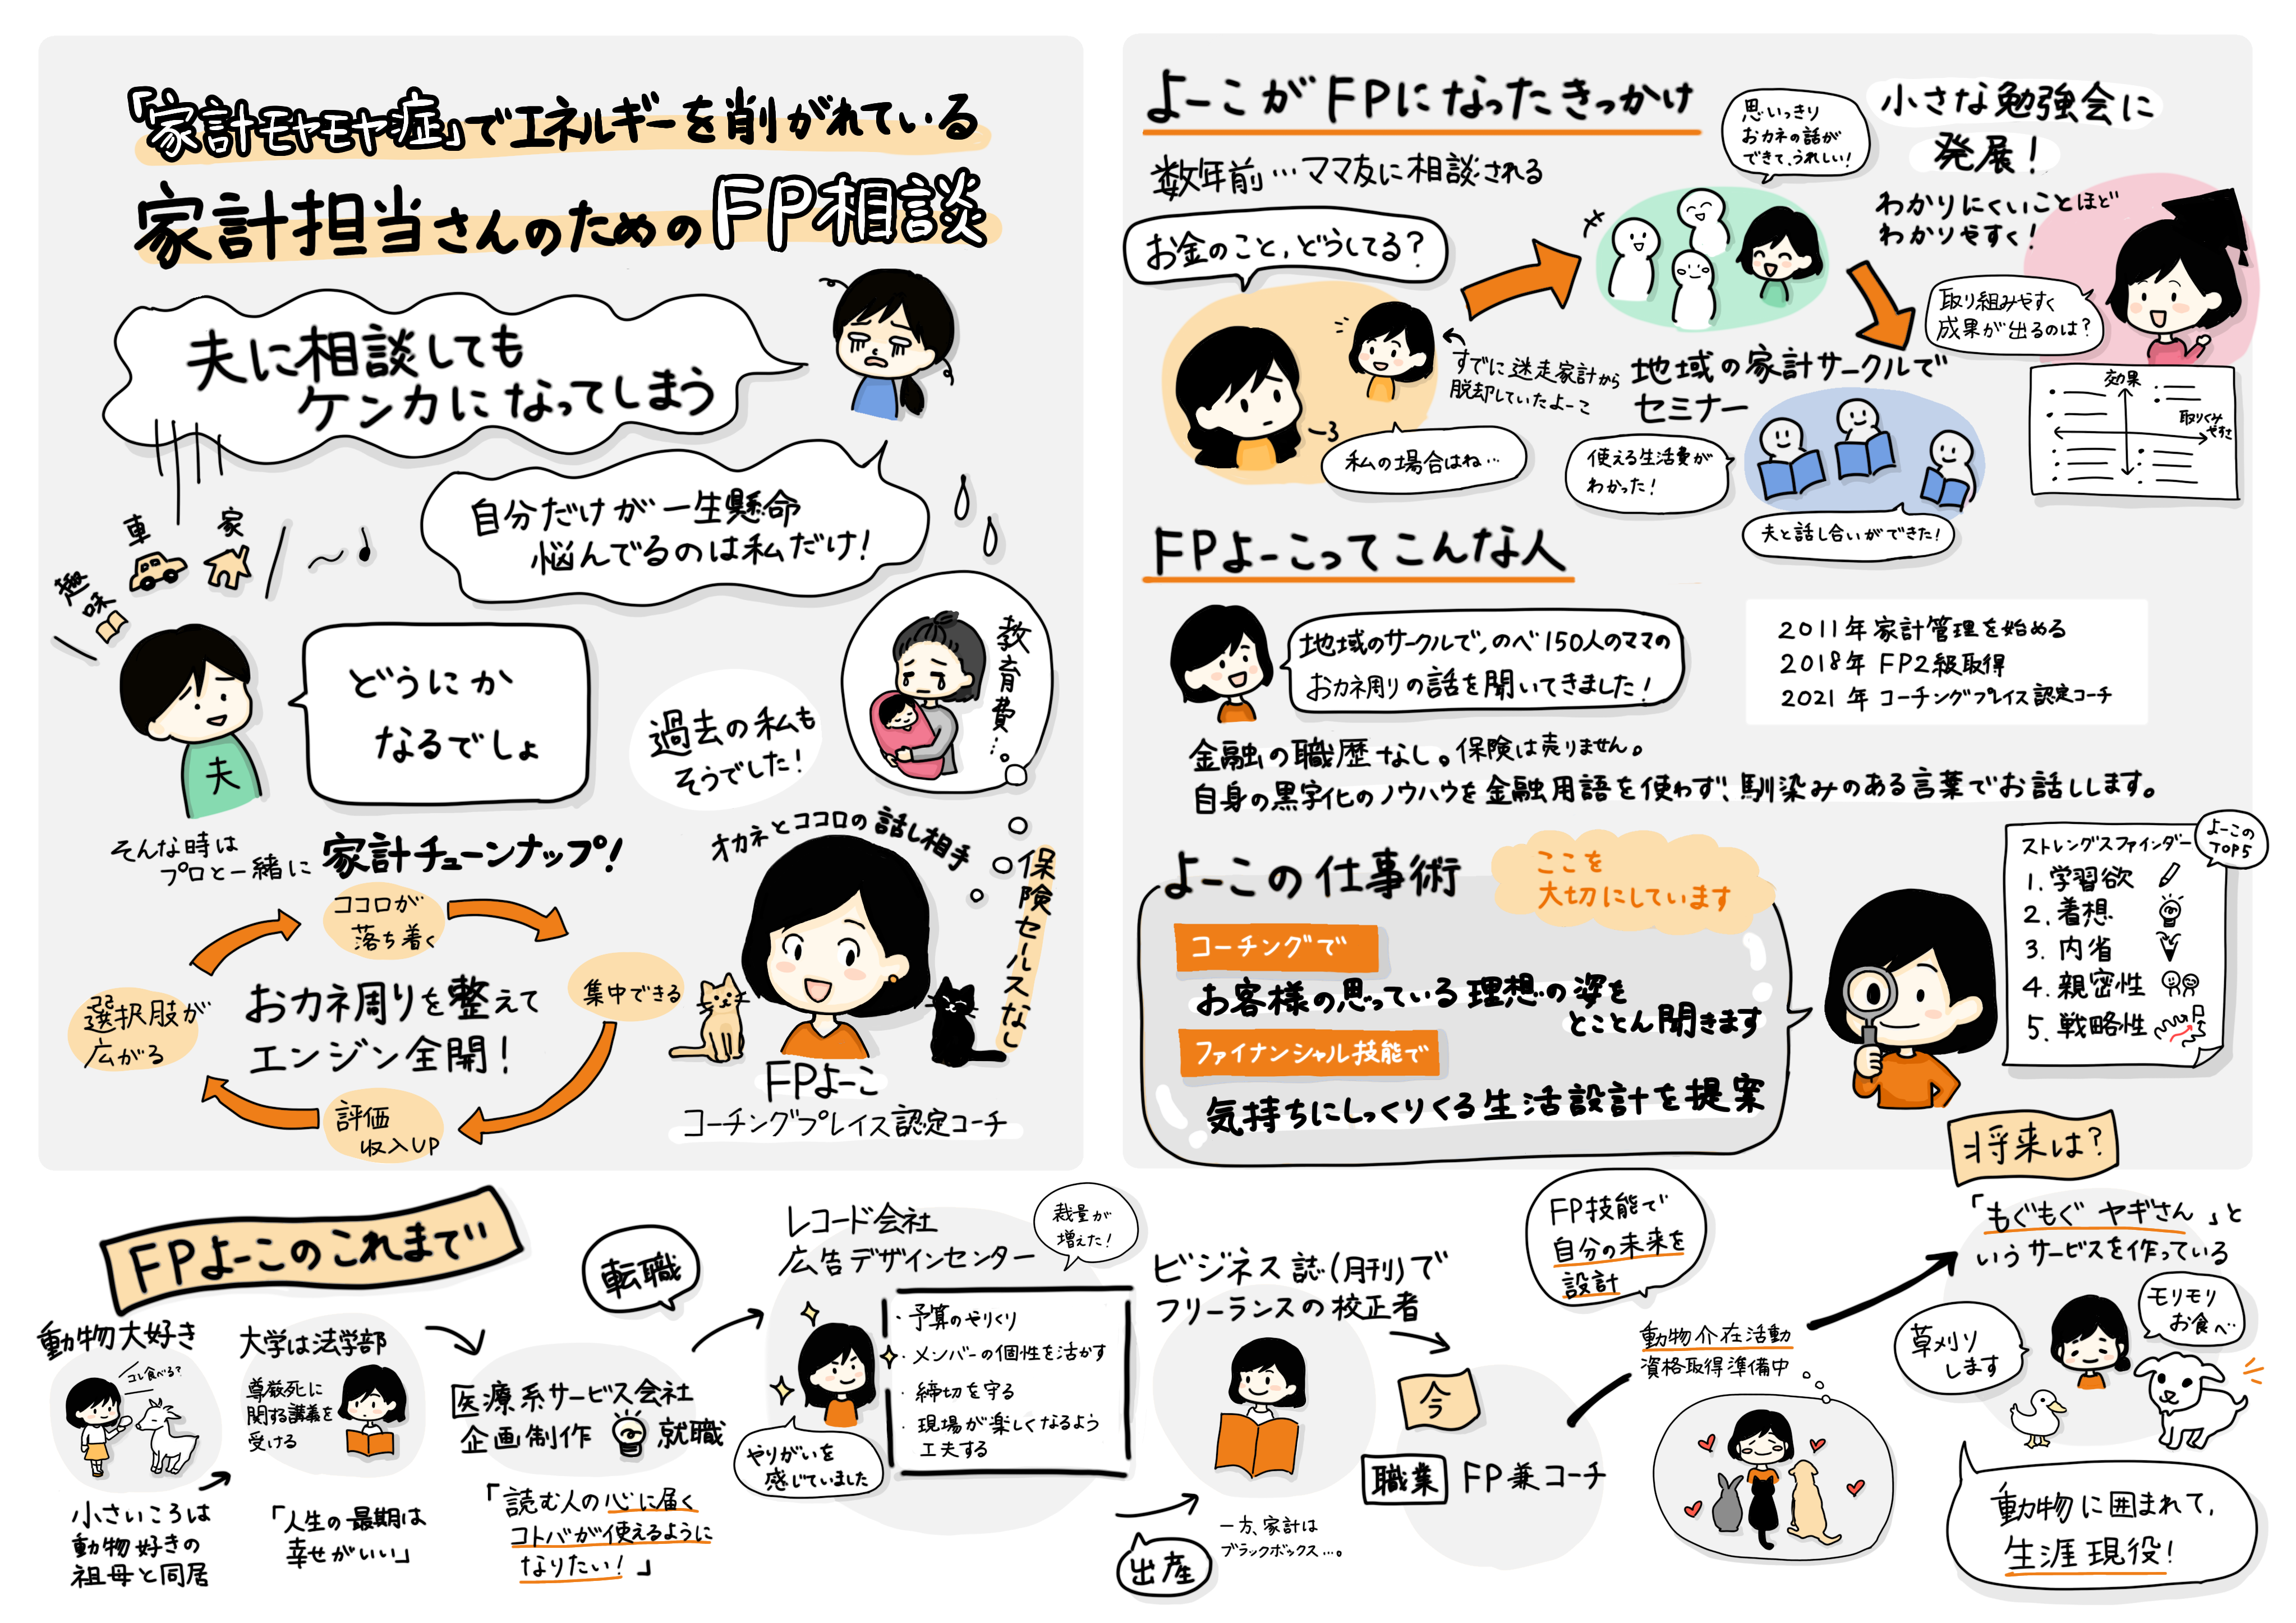 「家計モヤモヤ症」でエネルギーを削がれている
家計担当さんのためのFP相談
夫に相談しても
ケンカになってしまう
自分だけが一生懸命
悩んでるのは私だけ!
趣味
車
家
夫
どうにか
なるでしょ
過去の私も
そうでした!
教育費…。
そんな時は
プロと一緒に
家計チューンナップ!
ココロが
落ち着く
集中できる
評価
収入UP
選択肢が
広がる
おカネ周りを整えて
エンジン全開!
オカネとココロの話し相手
保険セールスなし
FPよーこ
コーチングプレイス認定コーチ
よーこがFPになったきっかけ
数年前…ママ友に相談される
お金のこと,どうしてる?
私の場合はね…
すでに迷走家計から
脱却していたよーこ
思いっきり
おカネの話が
できて、うれしい!
小さな勉強会に
発展!
わかりにくいことほど
わかりやすく!
取り組みやすく
成果が出るのは?
効果
取りくみ
やすさ
地域の家計サークルで
セミナー
使える生活費が
わかった!
夫と話し合いができた!
FPよーこってこんな人
地域のサークルで,のべ150人のママの
おカネ周りの話を聞いてきました!
2011年 家計管理を始める
2018年 FP2級取得
2021年 コーチングプレイス認定コーチ
金融の職歴なし。保険は売りません。
自身の黒字化のノウハウを金融用語を使わず、馴染みのある言葉でお話しします。
よーこの仕事術
ここを
大切にしています
コーチングで
お客様の思っている理想の姿を
とことん聞きます
ファイナンシャル技能で
気持ちにしっくりくる生活設計を提案
ストレングスファインダー
よーこの
TOP5
1.学習欲
2.着想
3.内省
4.親密性
5.戦略性
FPよーこのこれまで
動物大好き
コレ食べる?
小さいころは
動物好きの
祖母と同居
大学は法学部
尊厳死に
関する講義を
受ける
「人生の最期は
幸せがいい」
医療系サービス会社
企画制作 就職
「読む人の心に届く
コトバが使えるように
なりたい!」
転職
レコード会社
広告デザインセンター
裁量が
増えた!
・予算のやりくり
・メンバーの個性を活かす
・締切を守る
・現場が楽しくなるよう
工夫する
やりがいを
感じていました
出産
ビジネス誌(月刊)で
フリーランスの校正者
一方、家計は
ブラックボックス…。
今
職業 FP兼コーチ
FP技能で
自分の未来を
設計
動物介在活動
資格取得準備中
将来は?
「もぐもぐ ヤギさん」と
いうサービスを作っている
草刈り
します
モリモリ
お食べ
動物に囲まれて,
生涯現役!